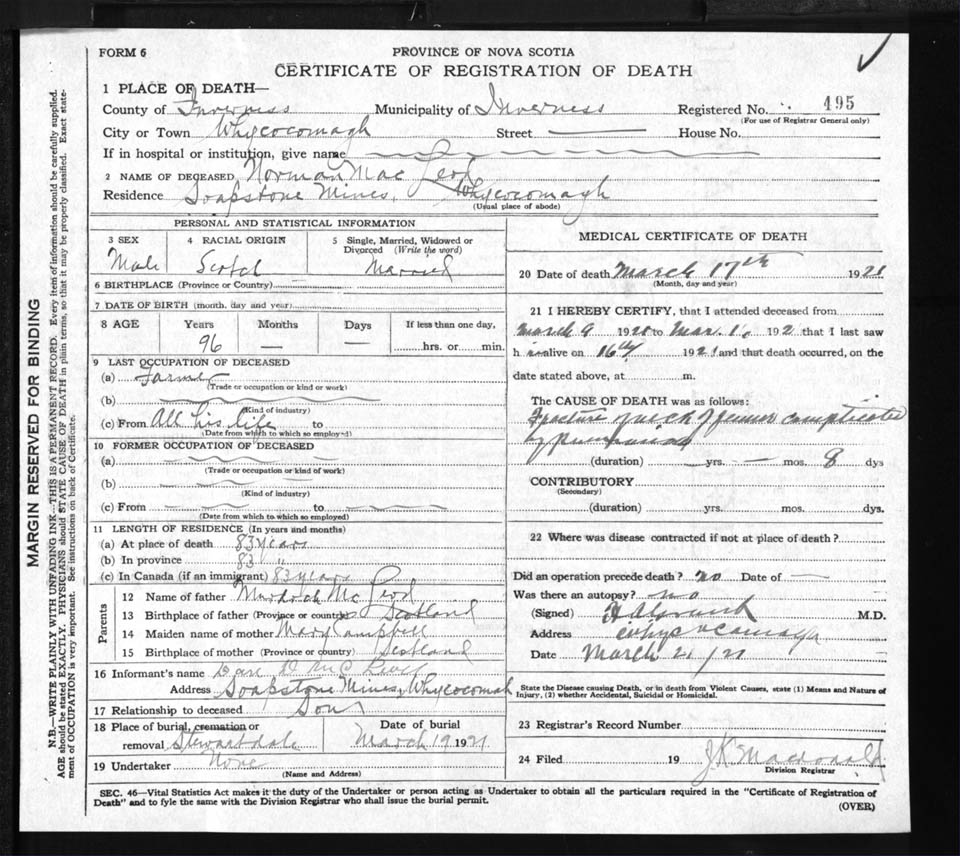 FORM 6
PROVINCE OF NOVA SCOTIA
CERTIFICATE OF REGISTRATION OF DEATH
1 PLACE OF DEATH—
County of Inverness Municipality of Inverness Registered No. 195
(For use of Registrar General only)
City or Town Whycocomagh Street House No.
If in hospital or institution, give name
2 NAME OF DECEASED Norman Mac Leod
Residence Soapstone Mines, Whycocomagh
(Usual place of abode)
PERSONAL AND STATISTICAL INFORMATION
3 SEX 4 RACIAL ORIGIN 5 Single, Married, Widowed or Divorced (Write the word)
Male Scotch Married
6 BIRTHPLACE (Province or Country)
7 DATE OF BIRTH (month, day and year)
8 AGE Years Months Days If less than one day,
96 — — hrs. or min.
9 LAST OCCUPATION OF DECEASED
(a) Farmer
(Trade or occupation or kind or work)
(b)
(Kind of industry)
(c) From All his life to
(Date from which to which so employed)
10 FORMER OCCUPATION OF DECEASED
(a)
(Trade or occupation or kind of work)
(b)
(Kind of industry)
(c) From to
(Date from which to which so employed)
11 LENGTH OF RESIDENCE (In years and months)
(a) At place of death 83 years
(b) In province 83 "
(c) In Canada (if an immigrant) 83 years
Parents
12 Name of father Murdoch Mc Leod
13 Birthplace of father (Province or country) Scotland
14 Maiden name of mother Mary Campbell
15 Birthplace of mother (Province or country) Scotland
16 Informant's name Dan D McLeod
Address Soapstone Mines, Whycocomah
17 Relationship to deceased Son
18 Place of burial, cremation or removal Stewartdale
Date of burial March 19 1921
19 Undertaker None
(Name and Address)
MEDICAL CERTIFICATE OF DEATH
20 Date of death March 17th 1921
(Month, day and year)
21 I HEREBY CERTIFY, that I attended deceased from
March 9 1921 to Mar. 192 that I last saw
h im alive on 16th 1921 and that death occurred, on the
date stated above, at m.
The CAUSE OF DEATH was as follows:
Fracture neck of femur complicated
by pneumonia
(duration) — yrs. — mos. 8 dys
CONTRIBUTORY
(Secondary)
(duration) yrs. mos. dys.
22 Where was disease contracted if not at place of death?
Did an operation precede death? no Date of —
Was there an autopsy? no
(Signed) M.D.
Address Whycocomagh
Date March 21/21
State the Disease causing Death, or in death from Violent Causes, state (1) Means and Nature of
Injury, (2) whether Accidental, Suicidal or Homicidal.
23 Registrar's Record Number
24 Filed 19 J K Macdonald
Division Registrar
SEC. 46—Vital Statistics Act makes it the duty of the Undertaker or person acting as Undertaker to obtain all the particulars required in the "Certificate of Registration of
Death" and to fyle the same with the Division Registrar who shall issue the burial permit.
(OVER)
MARGIN RESERVED FOR BINDING
N.B.—WRITE PLAINLY WITH UNFADING INK—THIS IS A PERMANENT RECORD. Every item of information should be carefully supplied.
AGE should be stated EXACTLY. PHYSICIANS should STATE CAUSE OF DEATH in plain terms, so that it may be properly classified. Exact statement
of OCCUPATION is very important. See instructions on back of Certificate.